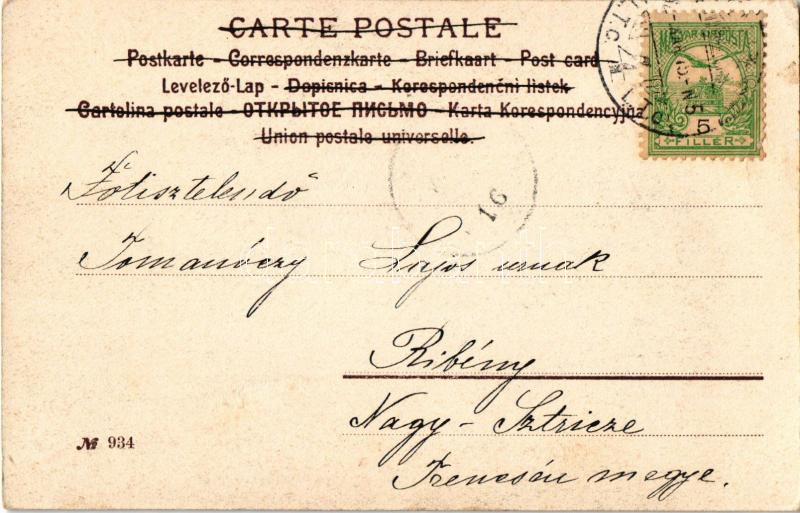 CARTE POSTALE
Postkarte – Correspondenzkarte – Briefkaart – Post card
Levelező-Lap – Dopisnica – Korespondenční listek
Cartolina postale – ОТКРЫТОЕ ПИСЬМО – Karta Korespondencyjna
Union postale universelle.
MAGYAR KIR. POSTA
5
FILLÉR
16
Főtisztelendő
Tomanóczy Lajos urnak
Ribény
Nagy-Sztricze
Trencsén megye.
№ 934